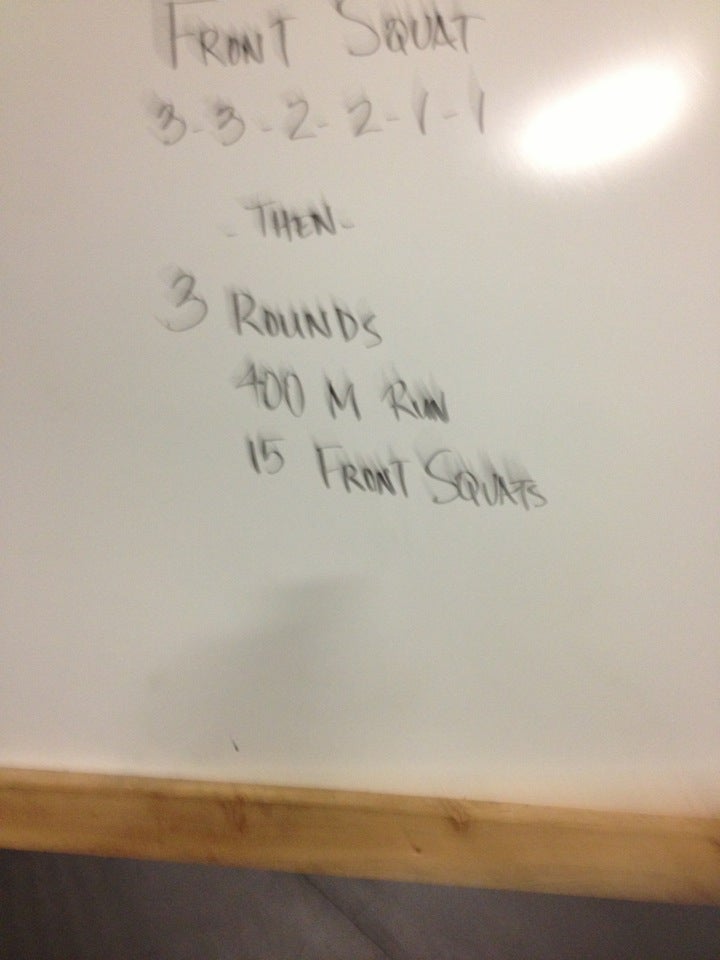 FRONT SQUAT
3-3-2-2-1-1
-THEN-
3 ROUNDS
400 M RUN
15 FRONT SQUATS